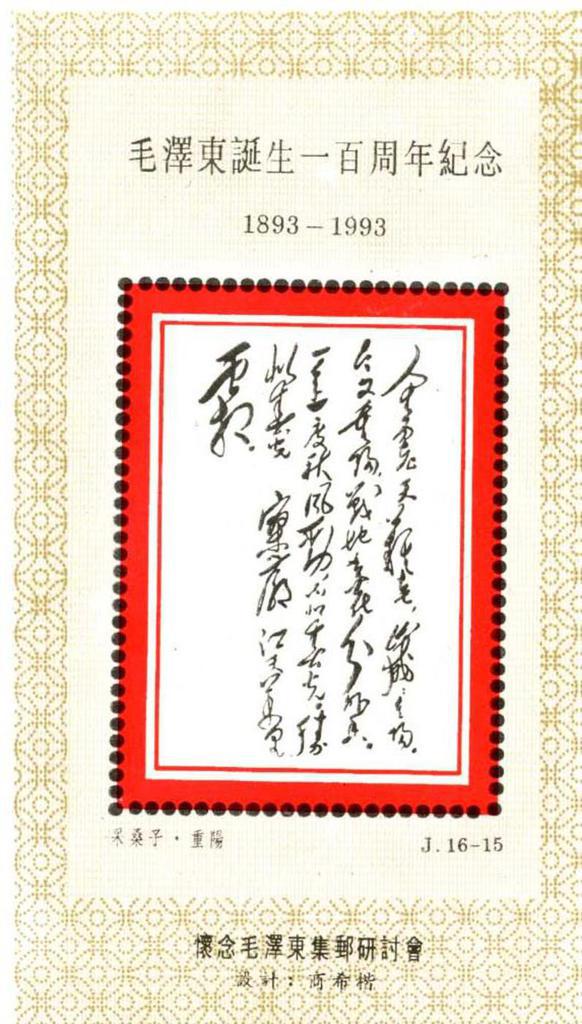 毛澤東誕生一百周年紀念
1893－1993
人生易老天難老，歲歲重陽。
今又重陽，戰地黃花分外香。
一年一度秋風勁，不似春光。勝
似春光 寥廓江天萬里
霜。
采桑子·重陽
J.16-15
懷念毛澤東集郵研討會
設計：商希楷